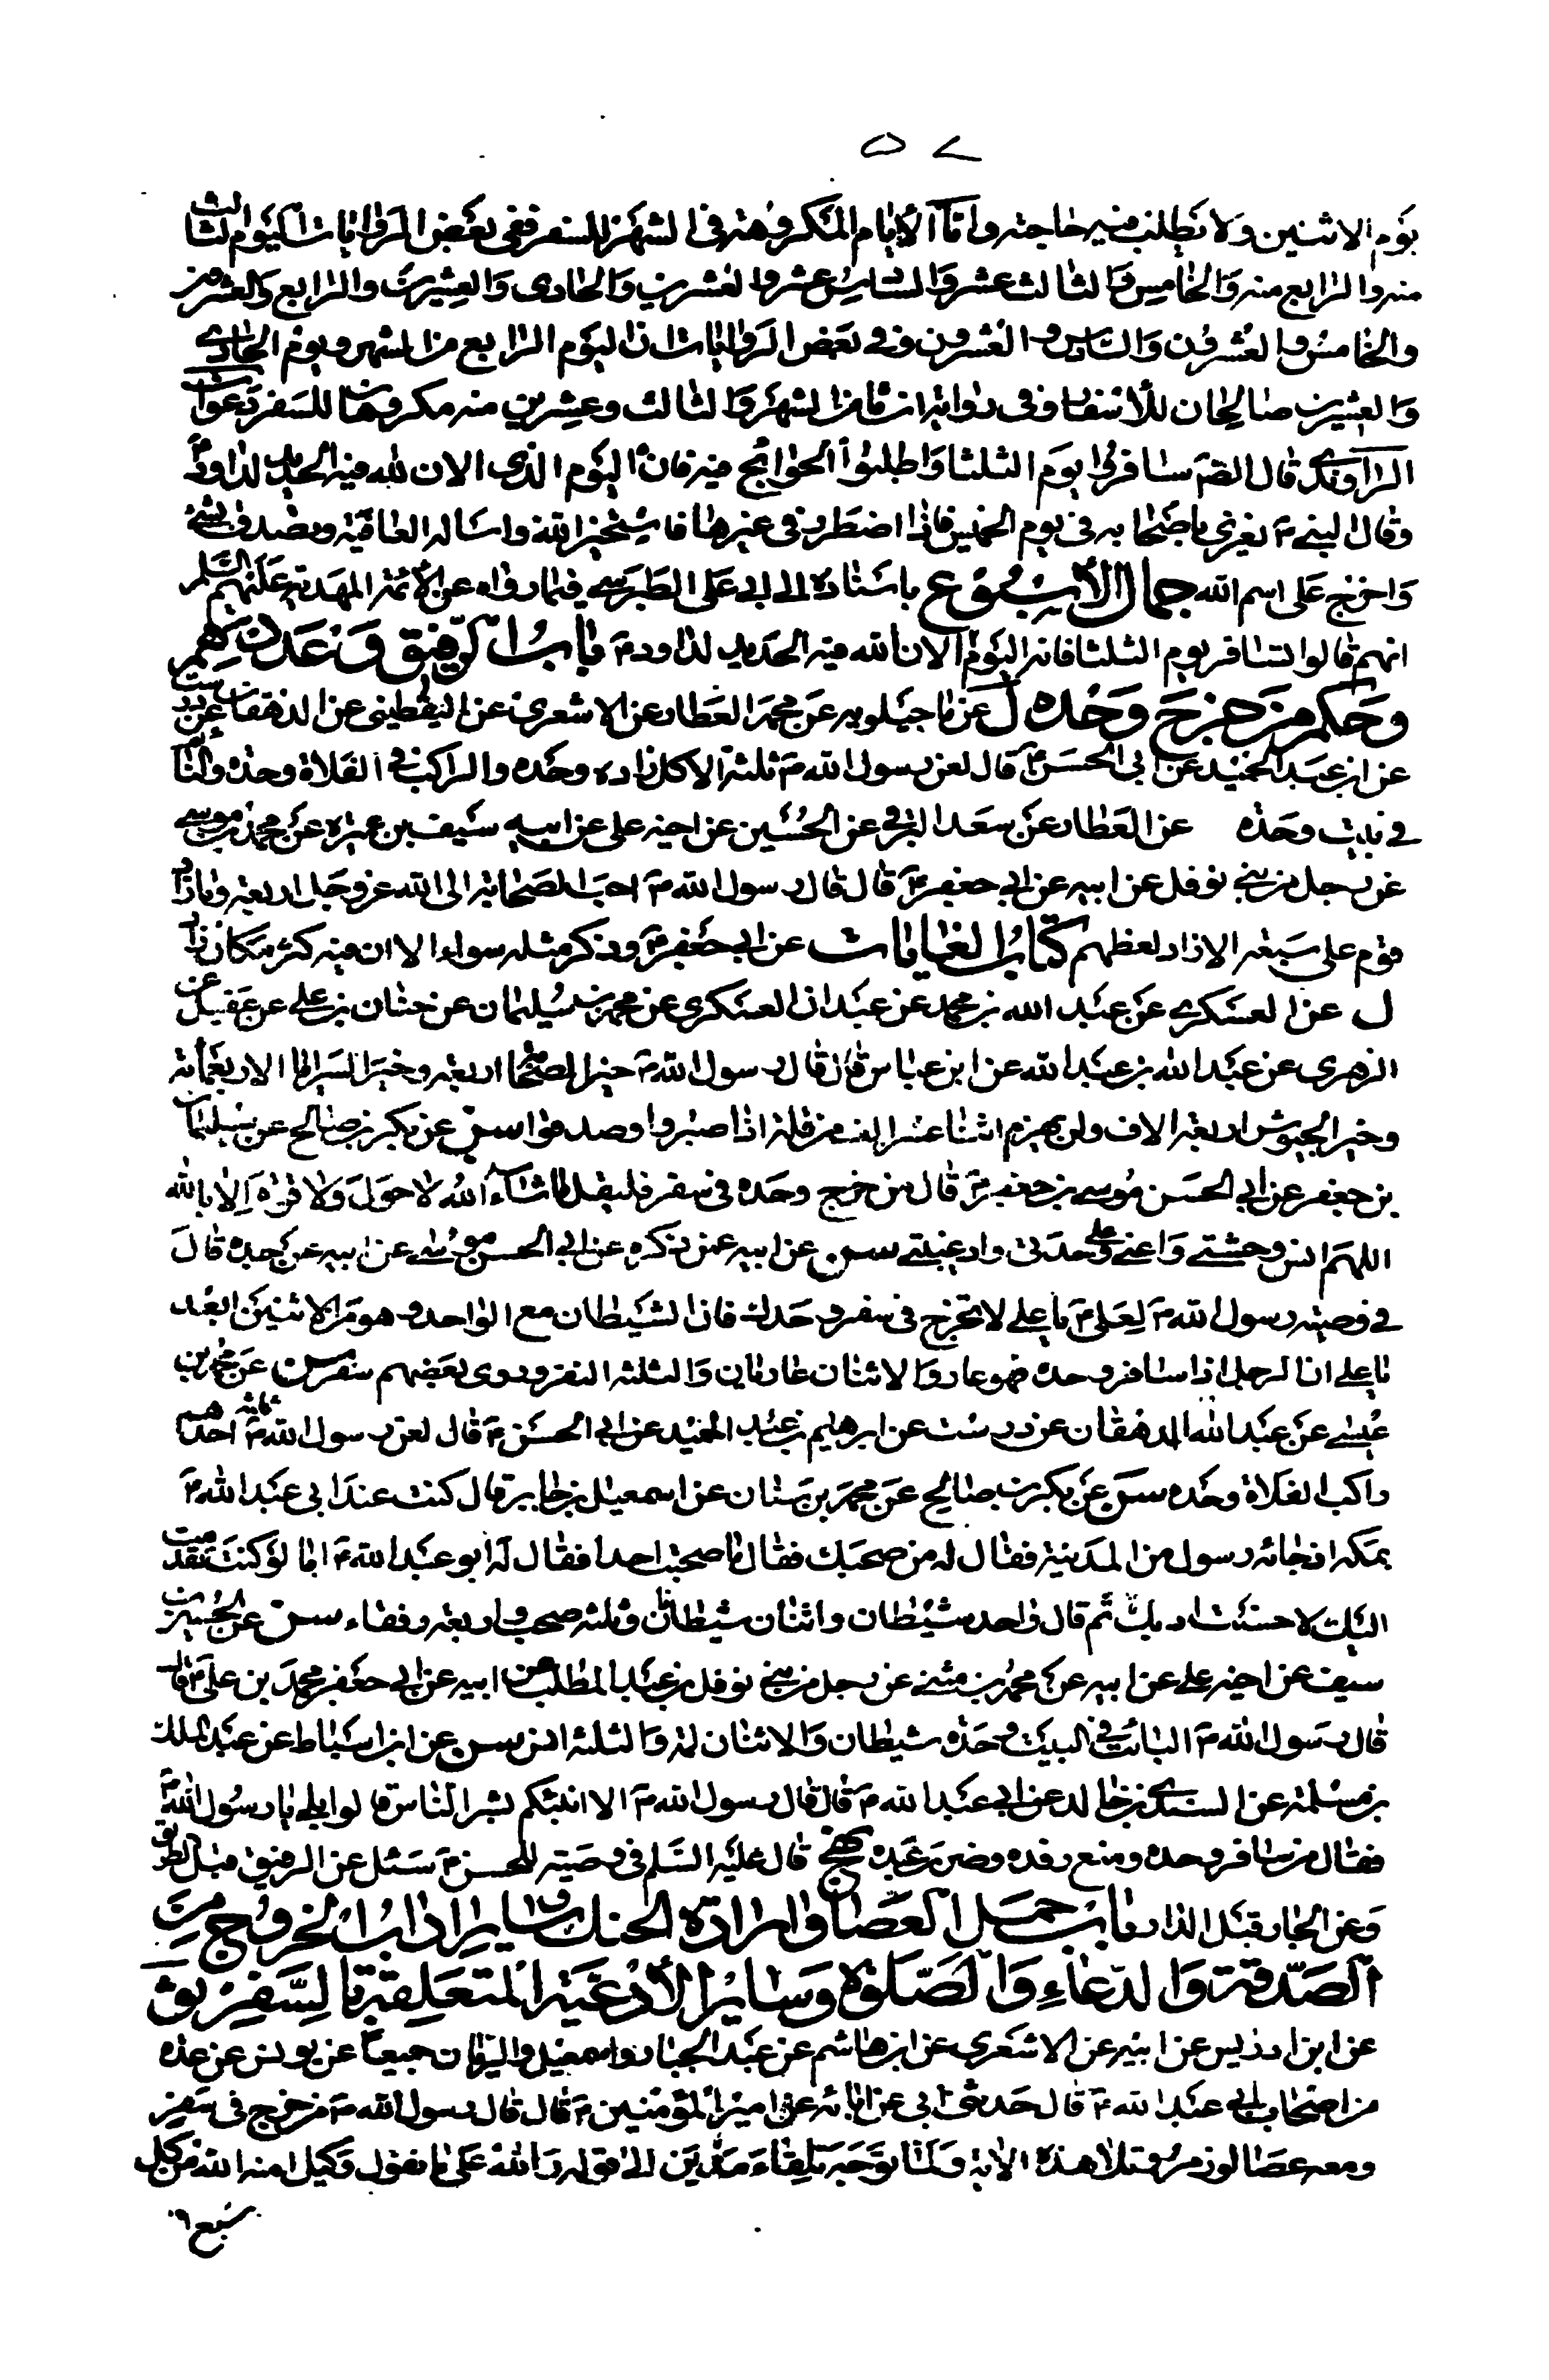 ٥٧
يوم الاثنين ولا تطلب فيه حاجته واما الايام المكروهة في الشهر للسفر ففي بعض الروايات اليوم الثالث
منه والرابع منه والخامس والثالث عشر والسادس عشر والعشرين والحادي والعشرين والرابع والعشرين
والخامس والعشرون والسادس والعشرون وفي بعض الروايات ان اليوم الرابع من الشهر ويوم الحادي
والعشرين صالحان للأسفار وفي رواية ان ثامن الشهر والثالث وعشرين منه مكروهان للسفر دعوات
الراوندي قال الصم سافروا يوم الثلثا واطلبوا الحوائج فيه فانه اليوم الذي الان الله فيه الحديد لداود
وقال النبي يغزي باصحابه في يوم الخميس فاذا اضطر في غيرها فاستخير الله واساله العافية وتصدق بشئ
واخرج على اسم الله جمال الأسبوع باسناده الى ابي على الطبرسي فيما رواه عن الأئمة المهدية عليهم السلم
انهم قالوا تسافر يوم الثلثا فانه اليوم الان الله فيه الحديد لداود باب الرفيق وعددهم
وحكم من خرج وحده ل عن ماجيلويه عن محمد العطار عن الاشعري عن اليقطيني عن الدهقان عن درست
عن ابن عبد الحميد عن ابي الحسن قال لعن رسول الله ثلثة الاكل زاده وحده والراكب في الفلاة وحده والنائم
في بيت وحده عن العطار عن سعد البرقي عن الحسين عن اخيه علي عن ابيه سيف بن عميره عن محمد بن موسى
عن رجل من بني نوفل عن ابيه عن ابي جعفر قال قال رسول الله احب الصحابة الى الله عز وجل اربعة وما زاد
قوم على سبعة الا زاد لغطهم كتاب الغايات عن ابي جعفر وذكر مثله سواء الا ان فيه كثر مكان زاد
ل عن العسكري عن عبد الله بن محمد عن عبدان العسكري عن محمد بن سليمان عن حنان بن علي عن عقيل عن
الزهري عن عبد الله بن عبد الله عن ابن عباس قال قال رسول الله خير الصحابة اربعة وخير السرايا الاربعمائة
وخير الجيوش اربعة الاف ولن يهزم اثنا عشر الف من قلة اذا صبروا وصدقوا سن عن بكر بن صالح عن سليمان
بن جعفر عن ابي الحسن موسى بن جعفر قال من خرج وحده في سفر فليقل ما شاء الله لا حول ولا قوة الا بالله
اللهم انس وحشتي واعني على وحدتي واد غيبتي سن عن ابيه عمن ذكره عن ابي الحسن موسى عن ابيه عن جده قال
في وصية رسول الله لعلى يا علي لا تخرج في سفر وحدك فان الشيطان مع الواحد وهو من الاثنين ابعد
يا علي ان الرجل اذا سافر وحده فهو غاو والاثنان غاويان والثلثة النفر وروى بعضهم سفر سن عن محمد بن
عيسى عن عبد الله الدهقان عن درست عن ابرهيم بن عبد الحميد عن ابي الحسن قال لعن رسول الله ثلثة احدهم
راكب الفلاة وحده سن عن بكر بن صالح عن محمد بن سنان عن اسمعيل بن جابر قال كنت عند ابي عبد الله
بمكه اذ جائه رسول من المدينة فقال له من صحبك فقال ما صحبت احدا فقال له ابو عبد الله اما لو كنت تقدمت
اليك لاحسنت ادبك ثم قال واحد شيطان واثنان شيطانان وثلثة صحب واربعة رفقاء سن عن الحسين بن
سيف عن اخيه علي عن ابيه عن محمد بن مثنى عن رجل من بني نوفل بن عبد المطلب عن ابيه عن ابي جعفر محمد بن علي قال
قال رسول الله البائت في البيت وحده شيطان والاثنان لمة والثلثة انس سن عن ابن اسباط عن عبد الملك
بن مسلمة عن السندي بن خالد عن ابي عبد الله قال قال رسول الله الا انبئكم بشر الناس قالوا بلى يا رسول الله
فقال من سافر وحده ومنع رفده وضرب عبده نهج قال عليه السلم في وصيته للحسن سئل عن الرفيق قبل الطريق
وعن الجار قبل الدار باب حمل العصا وادارة الحنك وساير اداب الخروج من
الصدقة والدعاء والصلوة وساير الأدعية المتعلقة بالسفر ثو
عن ابن ادريس عن ابيه عن الاشعري عن ابن هاشم عن عبد الجبار واسمعيل والريان جميعا عن يونس عن عده
من اصحاب ابي عبد الله قال حدثني ابي عن ابائه عن امير المؤمنين قال قال رسول الله من خرج في سفر
ومعه عصا لوز مر وتلا هذه الاية ولما توجه تلقاء مدين الى قوله والله على ما نقول وكيل امنه الله من كل
سبع